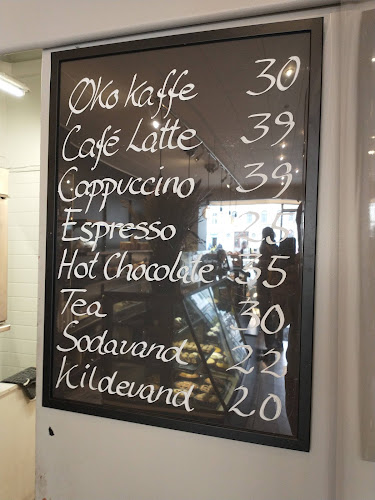 Øko kaffe 30
Café Latte 39
Cappuccino 39
Espresso 25
Hot Chocolate 35
Tea 30
Sodavand 22
Kildevand 20